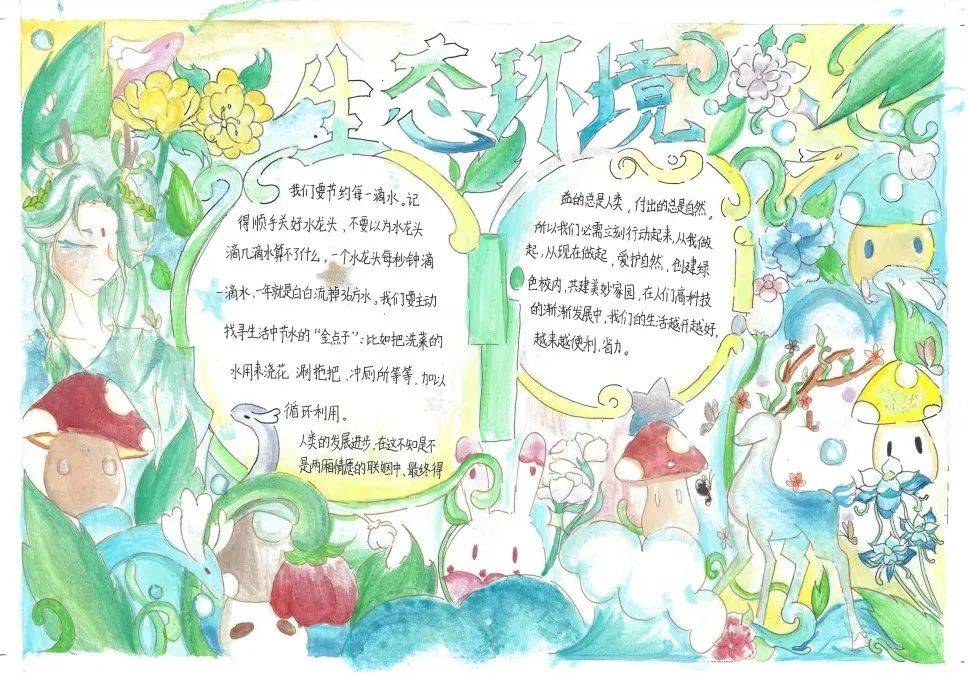 生态环境
我们要节约每一滴水。记
得顺手关好水龙头，不要以为水龙头
滴几滴水算不了什么，一个水龙头每秒钟滴
一滴水，一年就是白白流掉36方水。我们要主动
找寻生活中节水的“金点子”：比如把洗菜的
水用来浇花 涮拖把、冲厕所等等，加以
循环利用。
人类的发展进步，在这不知是不
是两厢情愿的联姻中，最终得
益的总是人类，付出的总是自然。
所以我们必需立刻行动起来，从我做
起，从现在做起，爱护自然，创建绿
色校内，共建美妙家园，在人们高科技
的渐渐发展中，我们的生活越开越好，
越来越便利、省力。